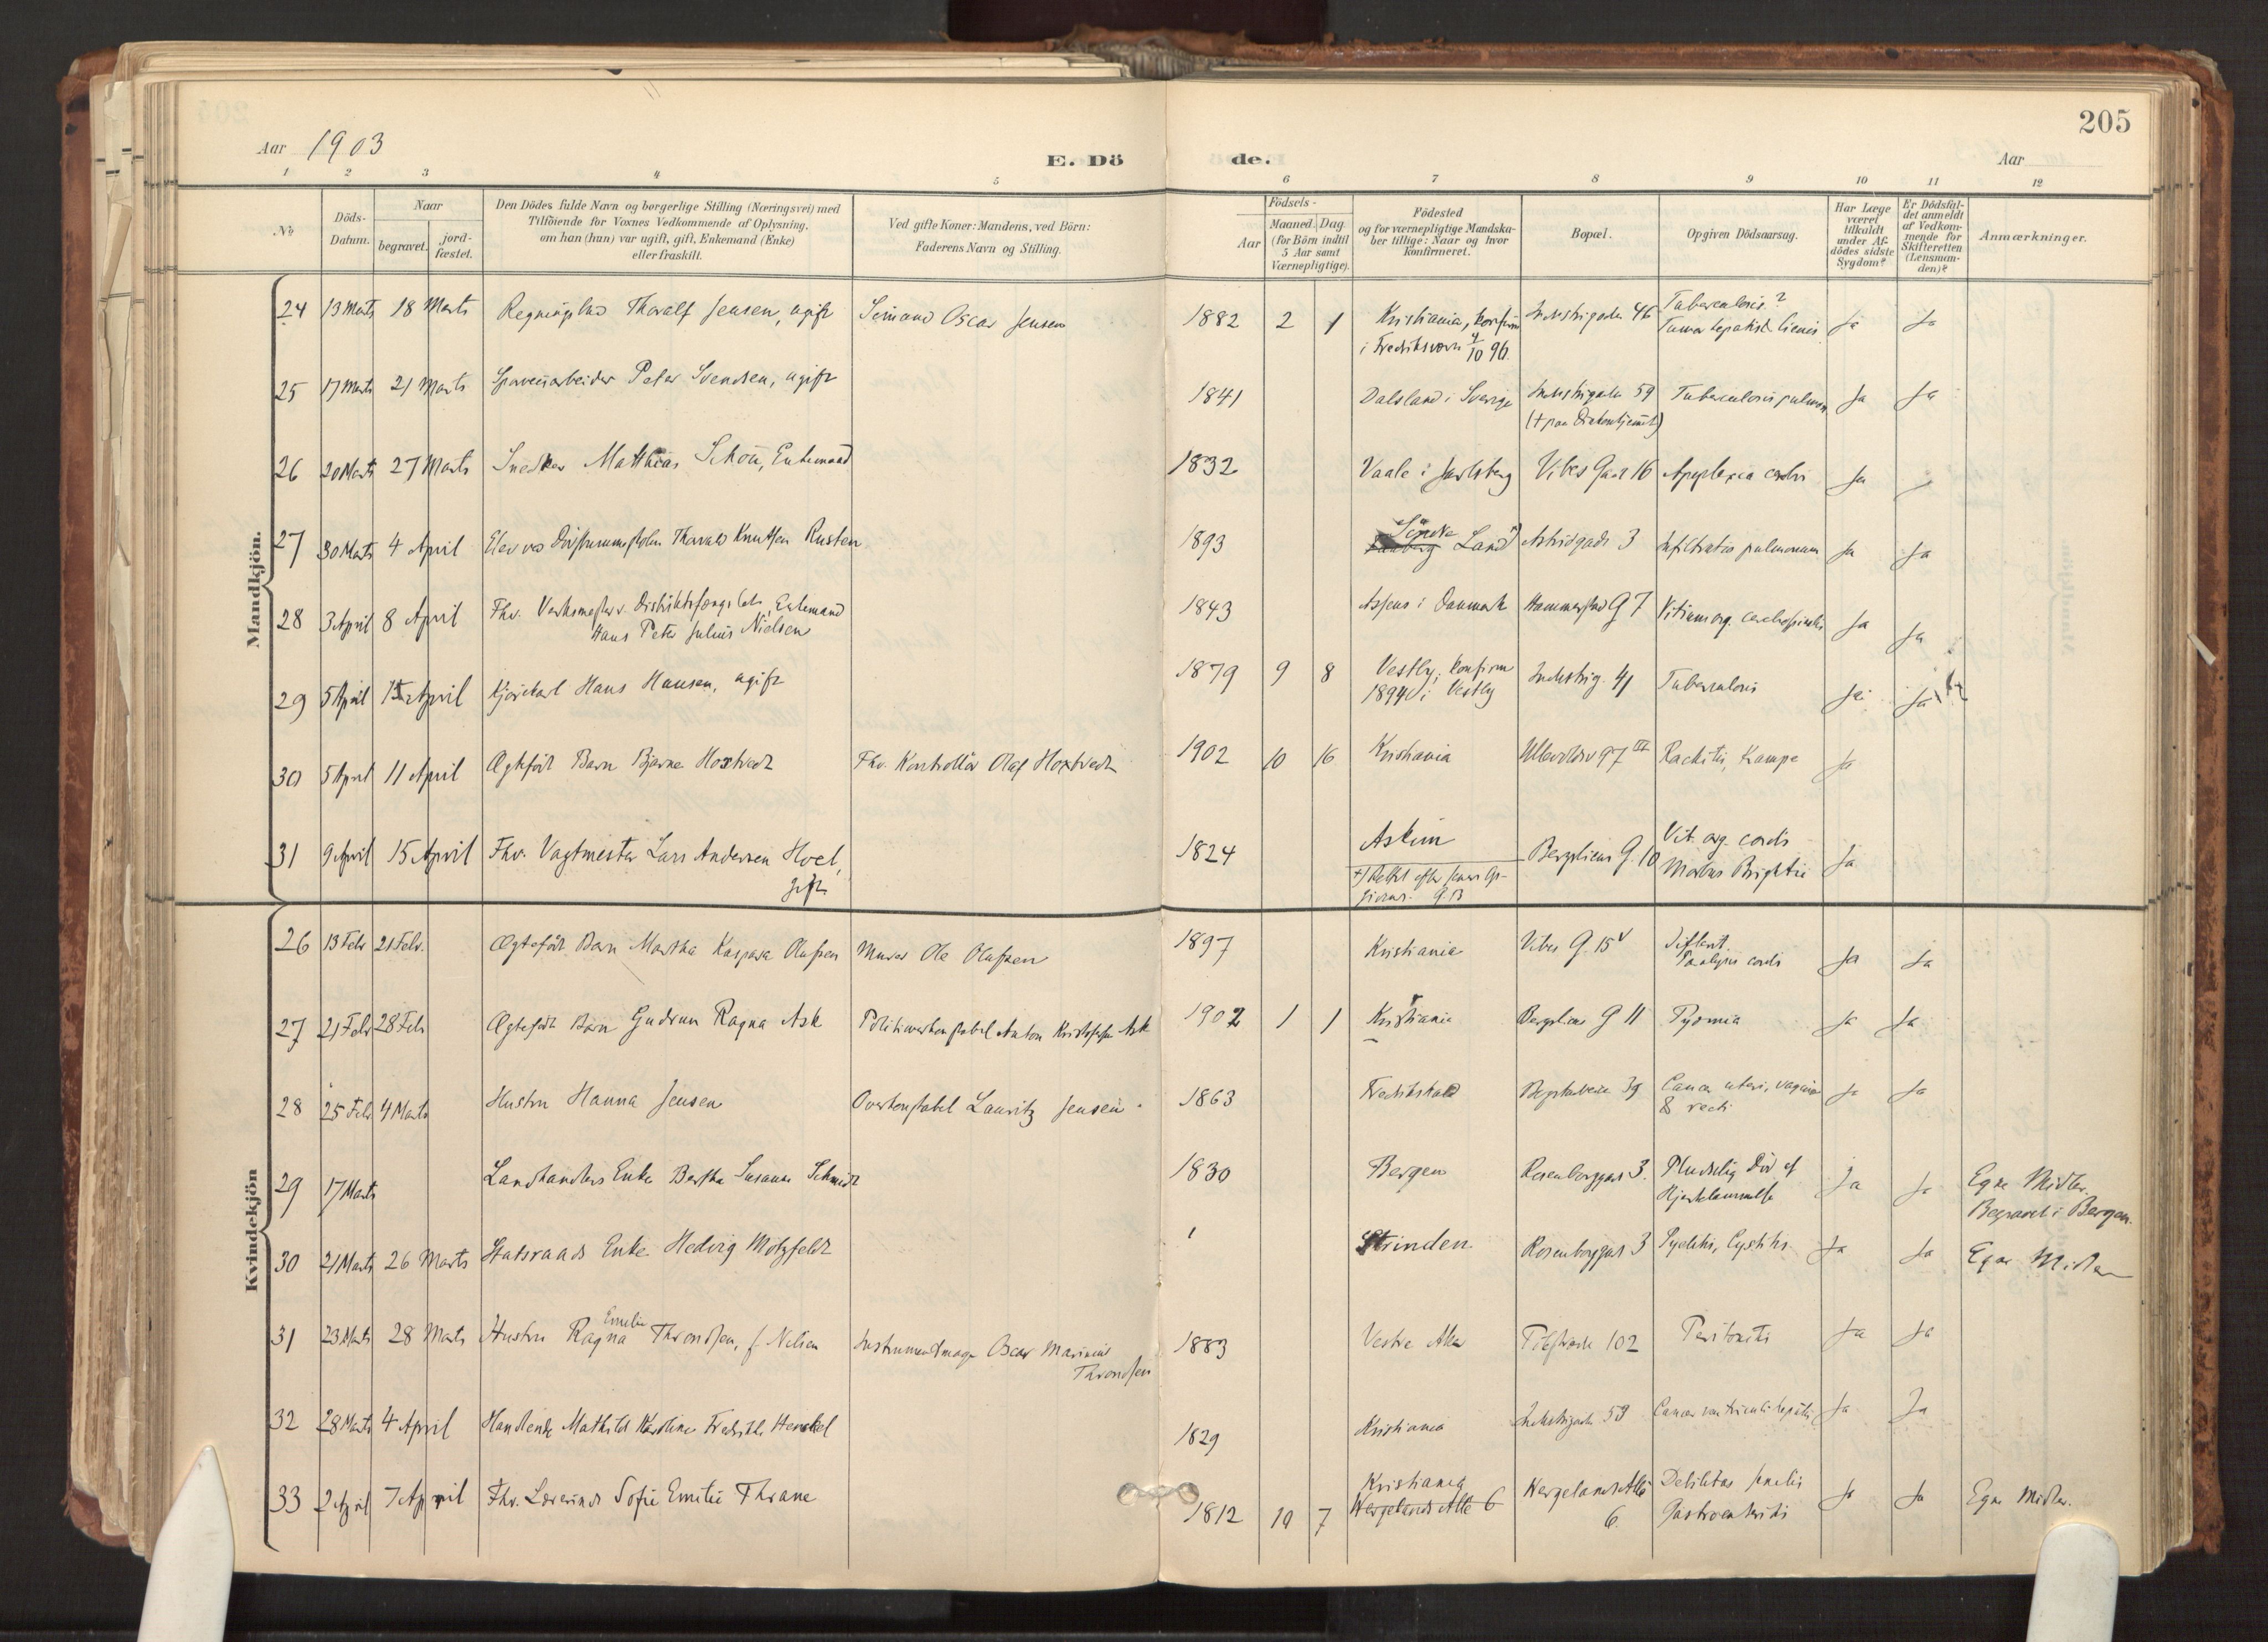 205
Aar 1903
E. Dö de.
Aar
1 2 3 4 5 6 7 8 9 10 11 12
No
Döds-
Datum.
Naar
begravet.
jord-
fæstet.
Den Dödes fulde Navn og borgerlige Stilling (Næringsvei) med
Tilföiende for Voxnes Vedkommende af Oplysning,
om han (hun) var ugift, gift, Enkemand (Enke)
eller fraskilt.
Ved gifte Koner: Mandens, ved Börn:
Faderens Navn og Stilling.
Födsels-
Aar
Maaned. Dag
(for Börn indtil
5 Aar samt
Værnepligtige).
Födested
og for værnepligtige Mandska-
ber tillige: Naar og hvor
konfirmeret.
Bopæl.
Opgiven Dödsaarsag.
Har Læge
været
tilkaldt
under Af-
dödes sidste
Sygdom?
Er Dödsfal-
det anmeldt
af Vedkom-
mende for
Skifteretten
(Lensman-
den)?
Anmærkninger.
Mandkjön.
24 13 Marts 18 Marts Tharalf Jensen, ugift Oscar Jensen 1882 2 1 Kristiania, konfirm Industrigaden 46 Tuberculosis? Ja Ja
i Fredriksværn 4/10 96.
25 17 Marts 21 Marts Sporveisarbeider Peter Svendsen, ugift 1841 Dalsland i Sverige Industrigaden 59 Tuberculosis pulmon Ja Ja
(+ paa Diakonhjemmet)
26 20 Marts 27 Marts Snedker Matthias Schou, Enkemand 1832 Vaale i Jarlsberg Vibes Gade 16 Apoplexia cerebri Ja
27 30 Marts 4 April Elev ved Døvstummeskolen Knutsen Rusten 1893 Söndre Land Astridgade 3 pulmonum Ja Ja
28 3 April 8 April Fhv. Enkemand 1843 Assens i Danmark G 7 Vitium org. Ja Ja
Hans Peter Julius Nielsen
29 5 April April Kjørekarl Hans Hansen, ugift 1879 9 8 Vestby, konfirm Industrig. 41 Tuberculosis Ja Ja
1894 i Vestby
30 5 April 11 April Ægtefødt Barn Bjarne Hoxtvedt Fhv. Kontrollør Olaf Hoxtvedt 1902 10 16 Kristiania Rachitis, Krampe Ja
31 9 April 15 April Fhv. Vagtmester Lars Andersen Hoel, 1824 Askim Bergliens G. 10 Vit. org. cordis Ja
gift
Morbus Brightii
Kvindekjön
26 13 Febr 21 Febr. Ægtefødt Barn Martha Kaspara Olafsen Murer Ole Olafsen 1897 Kristiania Vibes G. 15 V Difterit. Ja Ja
Paralysis cordis
27 21 Febr 28 Feb Ægtefødt Barn Gudrun Ragna Ask Politioverkonstabel Anton Kristoffersen Ask 1902 1 1 Kristiania Bergliens G 11 Pyæmia Ja Ja
28 25 Feb 4 Marts Hustru Hanna Jensen Overkonstabel Lauritz Jensen 1863 Fredrikshald 39 Cancer uteri, vaginæ Ja Ja
& recti
29 17 Marts Landhandlers Enke Bertha Susanne Schmidt 1830 Bergen Rosenborggade 3. Pludselig Død af Ja Ja Egne Midler.
Hjertelammelse Begravet i Bergen.
30 21 Marts 26 Marts Statsraads Enke Hedvig Motzfeldt Strinden Rosenborggade 3 Pyelitis, Cystitis Ja Ja Egne Midler
31 23 Marts 28 Marts Hustru Ragna Emelie Throndsen, f. Nilsen Instrumentmager Oscar Marinius 1883 Vestre Aker 102 Peritonitis Ja Ja
Throndsen
32 28 Marts 4 April Handlende Mathilde Karoline Fredrikke Henckel 1829 Kristiania Industrigade 59 Cancer ventriculi Ja Ja
33 2 April 7 April Fhv. Lærerinde Sofie Emilie Thrane 1812 10 7 Kristiania Wergelands Alle Debilitas senilis Ja Ja Egne Midler.
Wergelands Alle 6 6. Gastroenteritis